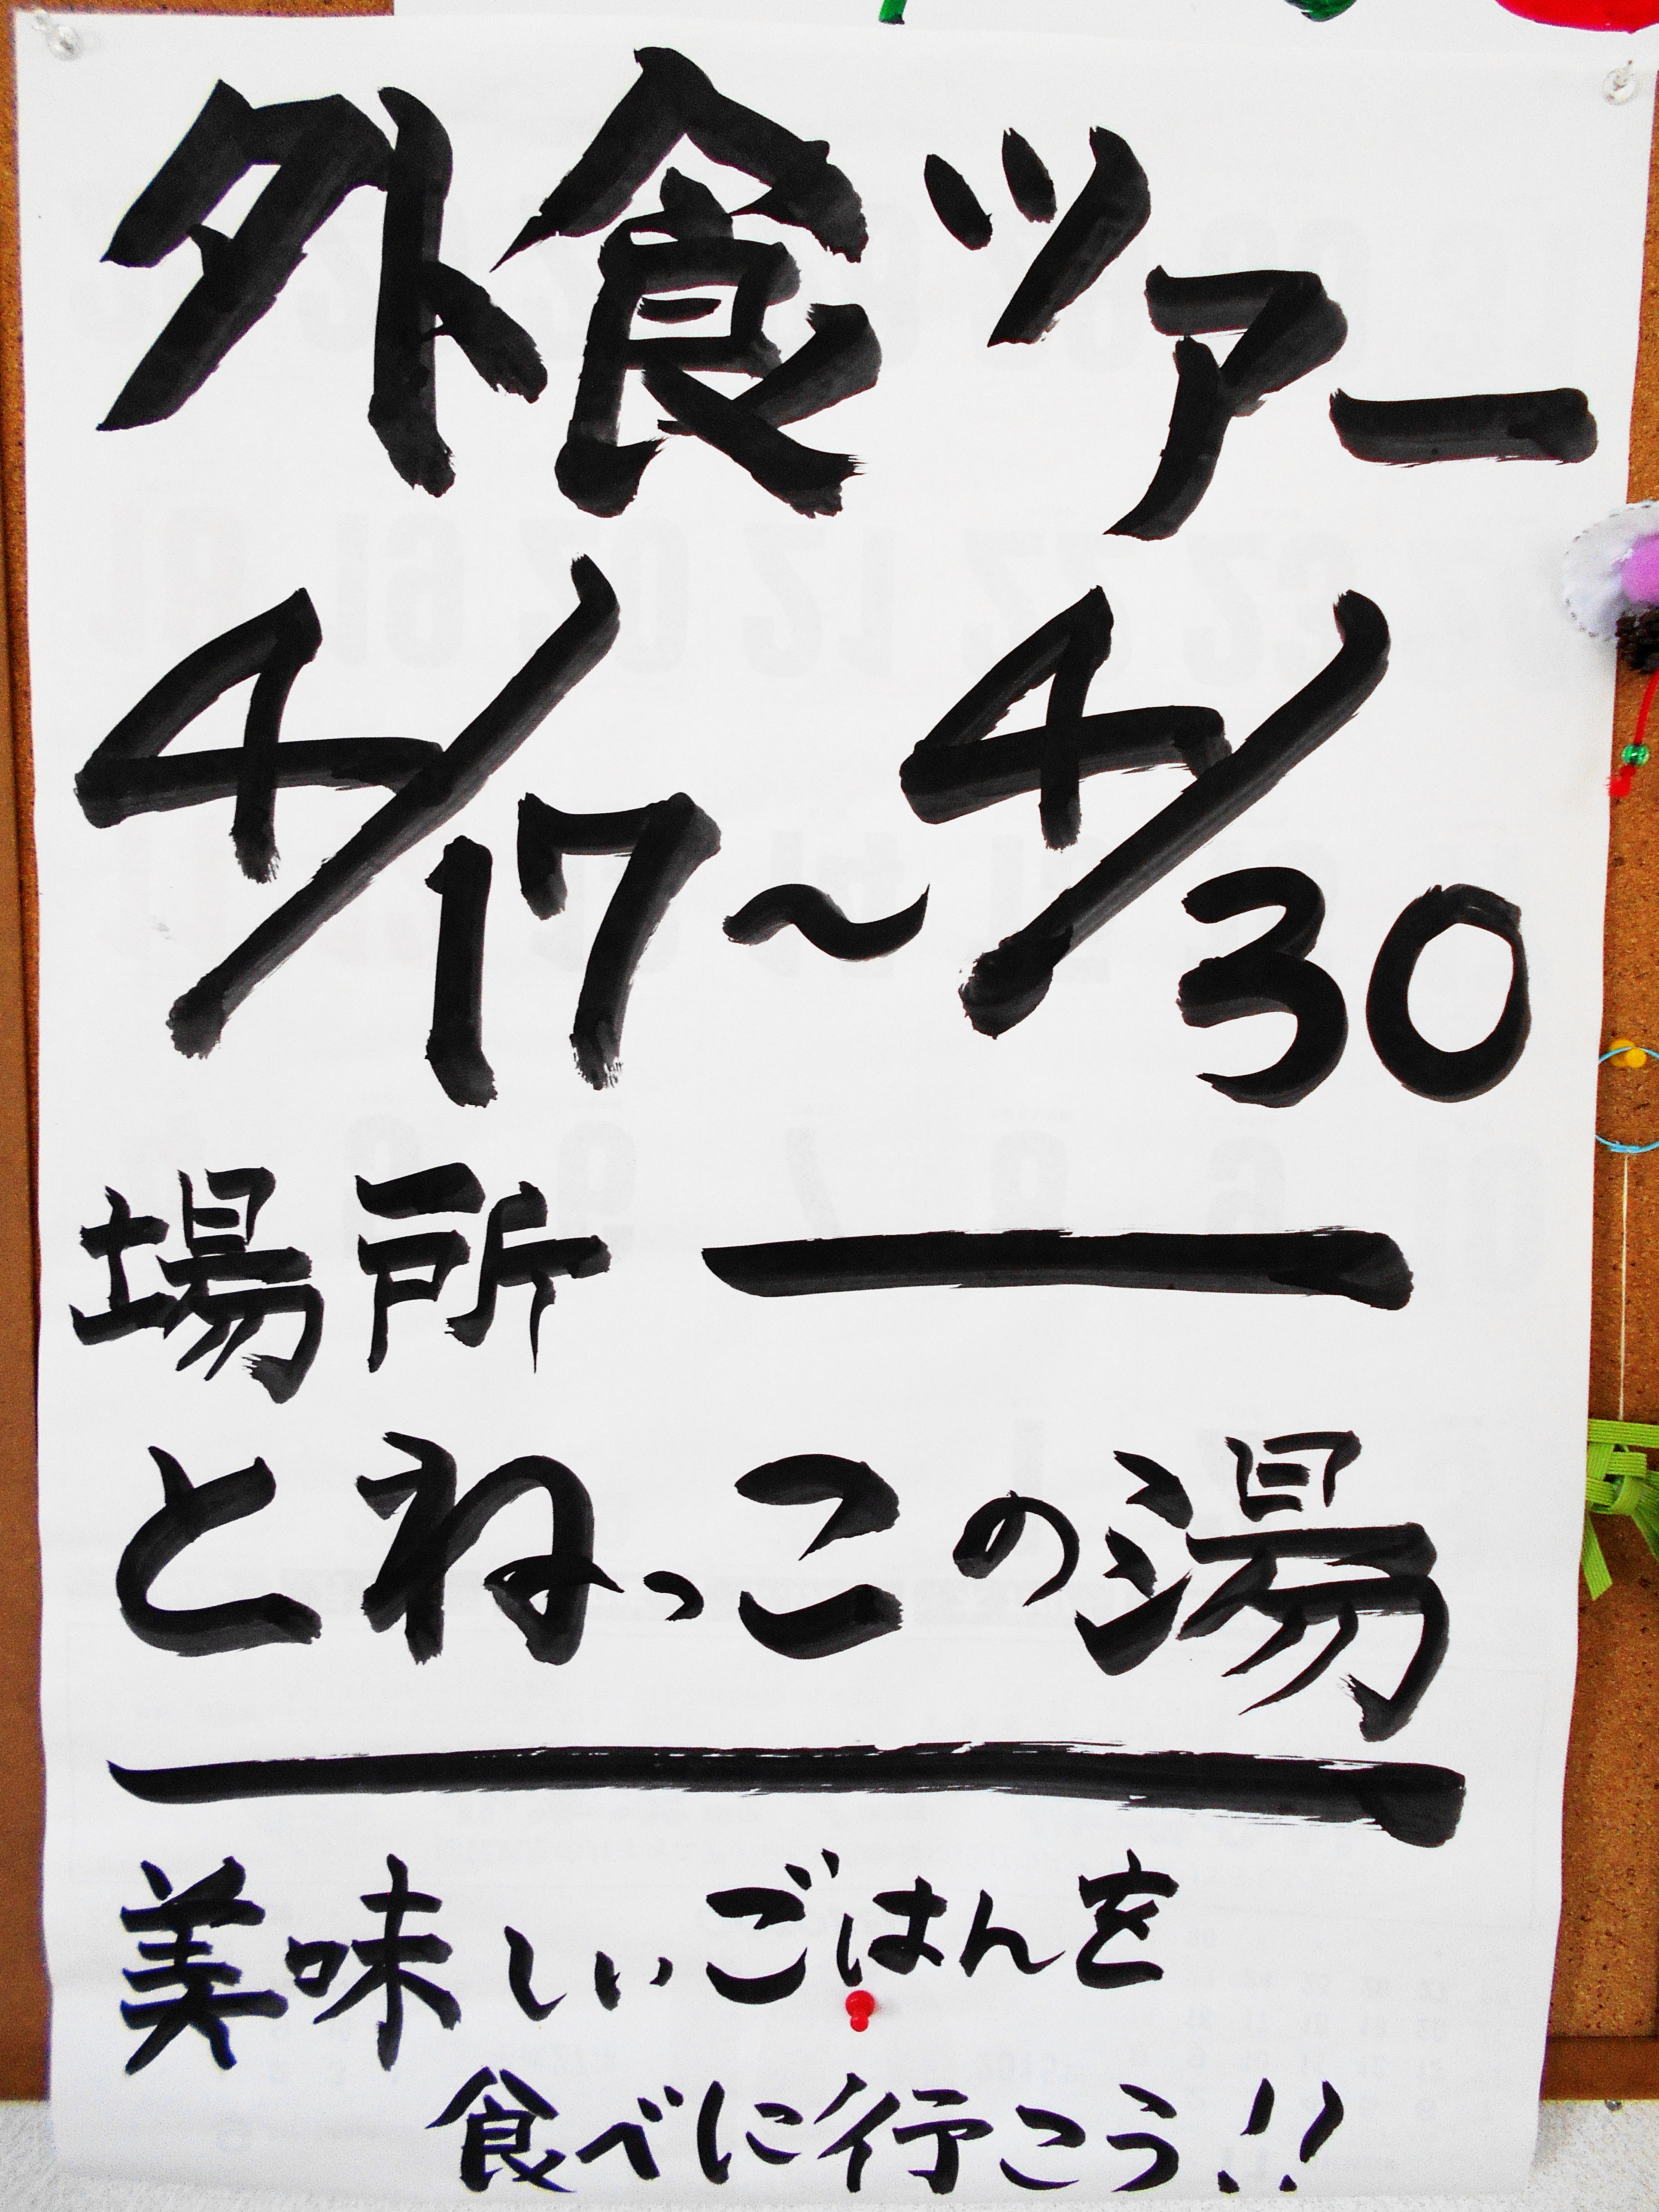 外食ツアー
4/17〜4/30
場所
とねっこの湯
美味しいごはんを
食べに行こう!!